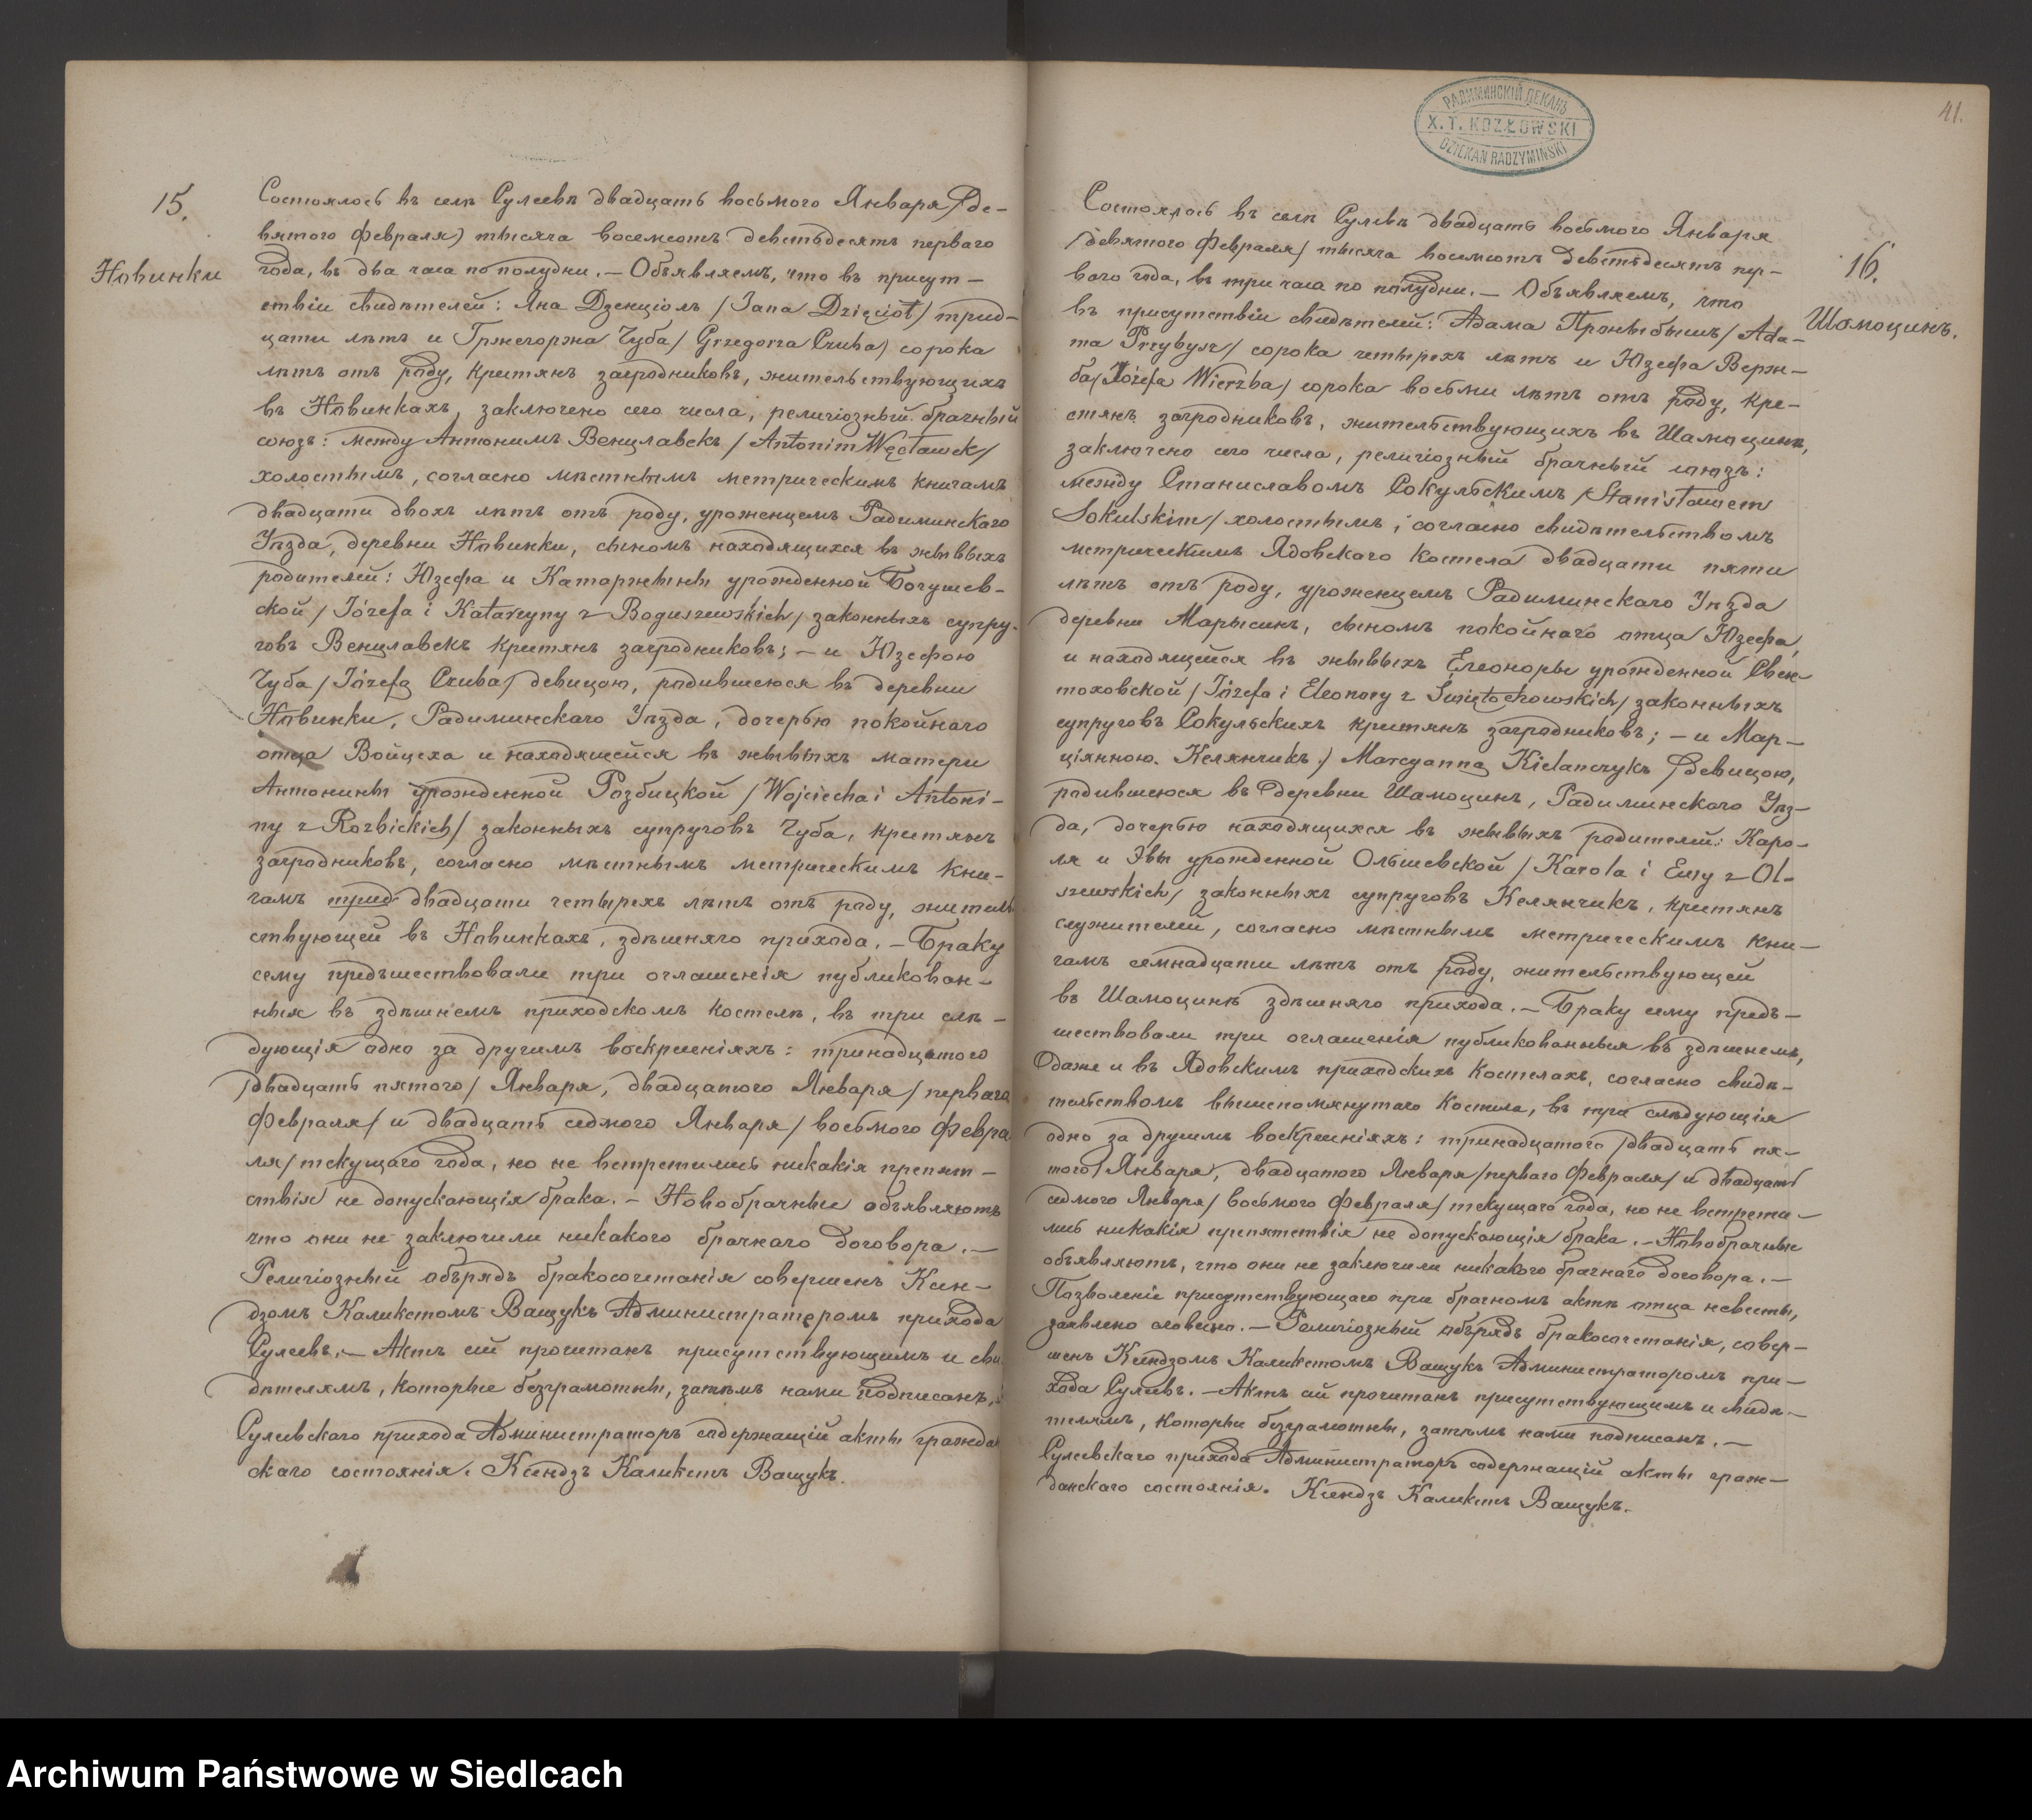 15.
Новинки
Состоялось въ селѣ Сулеевѣ двадцать восьмого Января /де-
вятого Февраля) тысяча восемсотъ девятьдесятъ перваго
года, въ два часа по полудни. — Объявляемъ, что въ присут-
ствіи свидѣтелей: Яна Дзенціолъ / Jana Dzięcioł / трид-
цати лѣтъ и Гржегоржа Чуба / Grzegorza Czuba) сорока
лѣтъ отъ роду, крестянъ загродниковъ, жительствующихъ
въ Новинкахъ, заключено сего числа, религіозный брачный
союзъ: между Антонимъ Венцлавекъ / Antonim Węcławek /
холостымъ, согласно мѣстнымъ метрическимъ книгамъ
двадцати двохъ лѣтъ отъ роду, уроженцемъ Радиминскаго
Уѣзда, деревни Новинки, сыномъ находящихся въ живыхъ
родителей: Юзефа и Катаржыны урожденной Богушев-
ской / Józefa i Katarzyny z Boguszewskich / законныхъ супру-
говъ Венцлавекъ крестянъ загродниковъ; — и Юзефою
Чуба / Józefą Czuba / девицою, родившеюся въ деревни
Новинки, Радиминскаго Уѣзда, дочерью покойнаго
отца Войцеха и находящейся въ живыхъ матери
Антонины урожденной Розбицкой / Wojciecha i Antoni-
ny z Rozbickich / законныхъ супруговъ Чуба, крестянъ
загродниковъ, согласно мѣстнымъ метрическимъ кни-
гамъ трид двадцати четырехъ лѣтъ отъ роду, житель
ствующей въ Новинкахъ, здѣшняго прихода. — Браку
сему предъшествовали три оглашенія публикован-
ныя въ здѣшнемъ приходскомъ костелѣ, въ три слѣ-
дующія одно за другимъ воскресеніяхъ: тринадцатого
/двадцать пятого/ Января, двадцатого Января / перваго
Февраля / и двадцать седмого Января / восьмого Февра
ля / текущаго года, но не встретились никакія препят-
ствія не допускающія брака. — Новобрачные объявляютъ
что они не заключили никакого брачнаго договора. —
Религіозный обърядъ бракосочетанія совершенъ Ксен-
дзомъ Каликстомъ Ващукъ Администраторомъ прихода
Сулеевъ. — Актъ сій прочитанъ присутствующимъ и сви
дѣтелямъ, которые безграмотны, затѣмъ нами подписанъ.
Сулеевскаго прихода Администраторъ содержащій акты гражда
скаго состоянія. Ксендзъ Каликстъ Ващукъ.
РАДИМИНСКІЙ ДЕКАНЪ
X. T. KOZŁOWSKI
DZIEKAN RADZYMIŃSKI
41.
16.
Шамоцинъ.
Состоялось въ селѣ Сулеевѣ двадцать восьмого Января
/девятого Февраля/ тысяча восемсотъ девятьдесятъ пер-
ваго года, въ три часа по полудни. — Объявляемъ, что
въ присутствіи свидѣтелей: Адама Пржыбышъ / Ada-
ma Przybysz / сорока четырехъ лѣтъ и Юзефа Верж-
ба / Józefa Wierzba / сорока восьми лѣтъ отъ роду, кре-
стянъ загродниковъ, жительствующихъ въ Шамоцинѣ,
заключено сего числа, религіозный брачный союзъ:
между Станиславомъ Сокульскимъ / Stanisławem
Sokulskim / холостымъ, согласно свидѣтельствомъ
метрическимъ Ядовскаго костела двадцати пяти
лѣтъ отъ роду, уроженцемъ Радиминскаго Уѣзда
деревни Марысинъ, сыномъ покойнаго отца Юзефа,
и находящейся въ живыхъ Елеоноры урожденной Свен-
тоховской / Józefa i Eleonory z Świętochowskich / законныхъ
супруговъ Сокульскихъ крестянъ загродниковъ; — и Мар-
ціянною Келянчикъ / Marcyanną Kielanczykъ / девицою,
родившеюся въ деревни Шамоцинъ, Радиминскаго Уѣз-
да, дочерью находящихся въ живыхъ родителей: Каро-
ля и Эвы урожденной Ольшевской / Karola i Ewy z Ol-
szewskich / законныхъ супруговъ Келянчикъ, крестянъ
служителей, согласно мѣстнымъ метрическимъ кни-
гамъ семнадцати лѣтъ отъ роду, жительствующей
въ Шамоцинѣ здѣшняго прихода. — Браку сему предъ-
шествовали три оглашенія публикованныя въ здѣшнемъ,
даже и въ Ядовскимъ приходскихъ костелахъ, согласно свидѣ-
тельствомъ вышепомянутаго костела, въ три слѣдующія
одно за другимъ воскресеніяхъ: тринадцатого /двадцать пя-
того/ Января, двадцатого Января / перваго Февраля / и двадцать
седмого Января / восьмого Февраля / текущаго года, но не встрети-
лись никакія препятствія не допускающія брака. — Новобрачные
объявляютъ, что они не заключили никакого брачнаго договора. —
Позволеніе присутствующаго при брачномъ актѣ отца невесты,
заявлено словесно. — Религіозный обърядъ бракосочетанія, совер-
шенъ Ксендзомъ Каликстомъ Ващукъ Администраторомъ при-
хода Сулеевъ. — Актъ сій прочитанъ присутствующимъ и свидѣ-
телямъ, которые безграмотны, затѣмъ нами подписанъ. —
Сулеевскаго прихода Администраторъ содержащій акты граж-
данскаго состоянія. Ксендзъ Каликстъ Ващукъ.
Archiwum Państwowe w Siedlcach